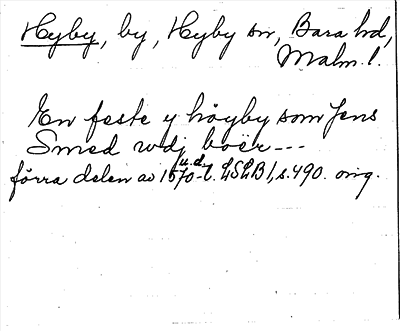 Hyby, by, Hyby sn, Bara hd,
Malm. l.
En feste y höyby som Jens
Smed wdj boer---
u.d.
förra delen av 1570-t. LSLB 1, s. 490. orig.